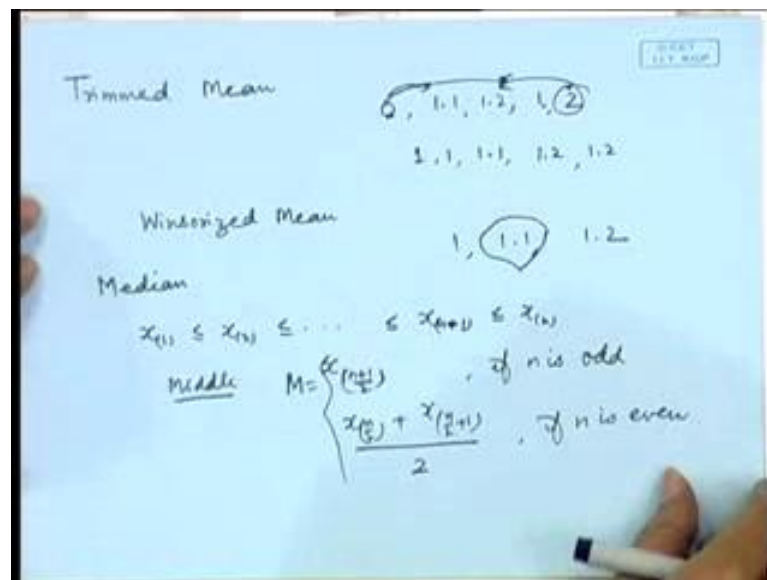 Trimmed Mean
0, 1.1, 1.2, 1, 2
1, 1, 1.1, 1.2, 1.2
Winsorized Mean
1, 1.1 1.2
Median
x(1) ≤ x(2) ≤ ... ≤ x(n-1) ≤ x(n)
Middle M = { x((n+1)/2) , if n is odd
(x(n/2) + x(n/2+1))/2 , if n is even.